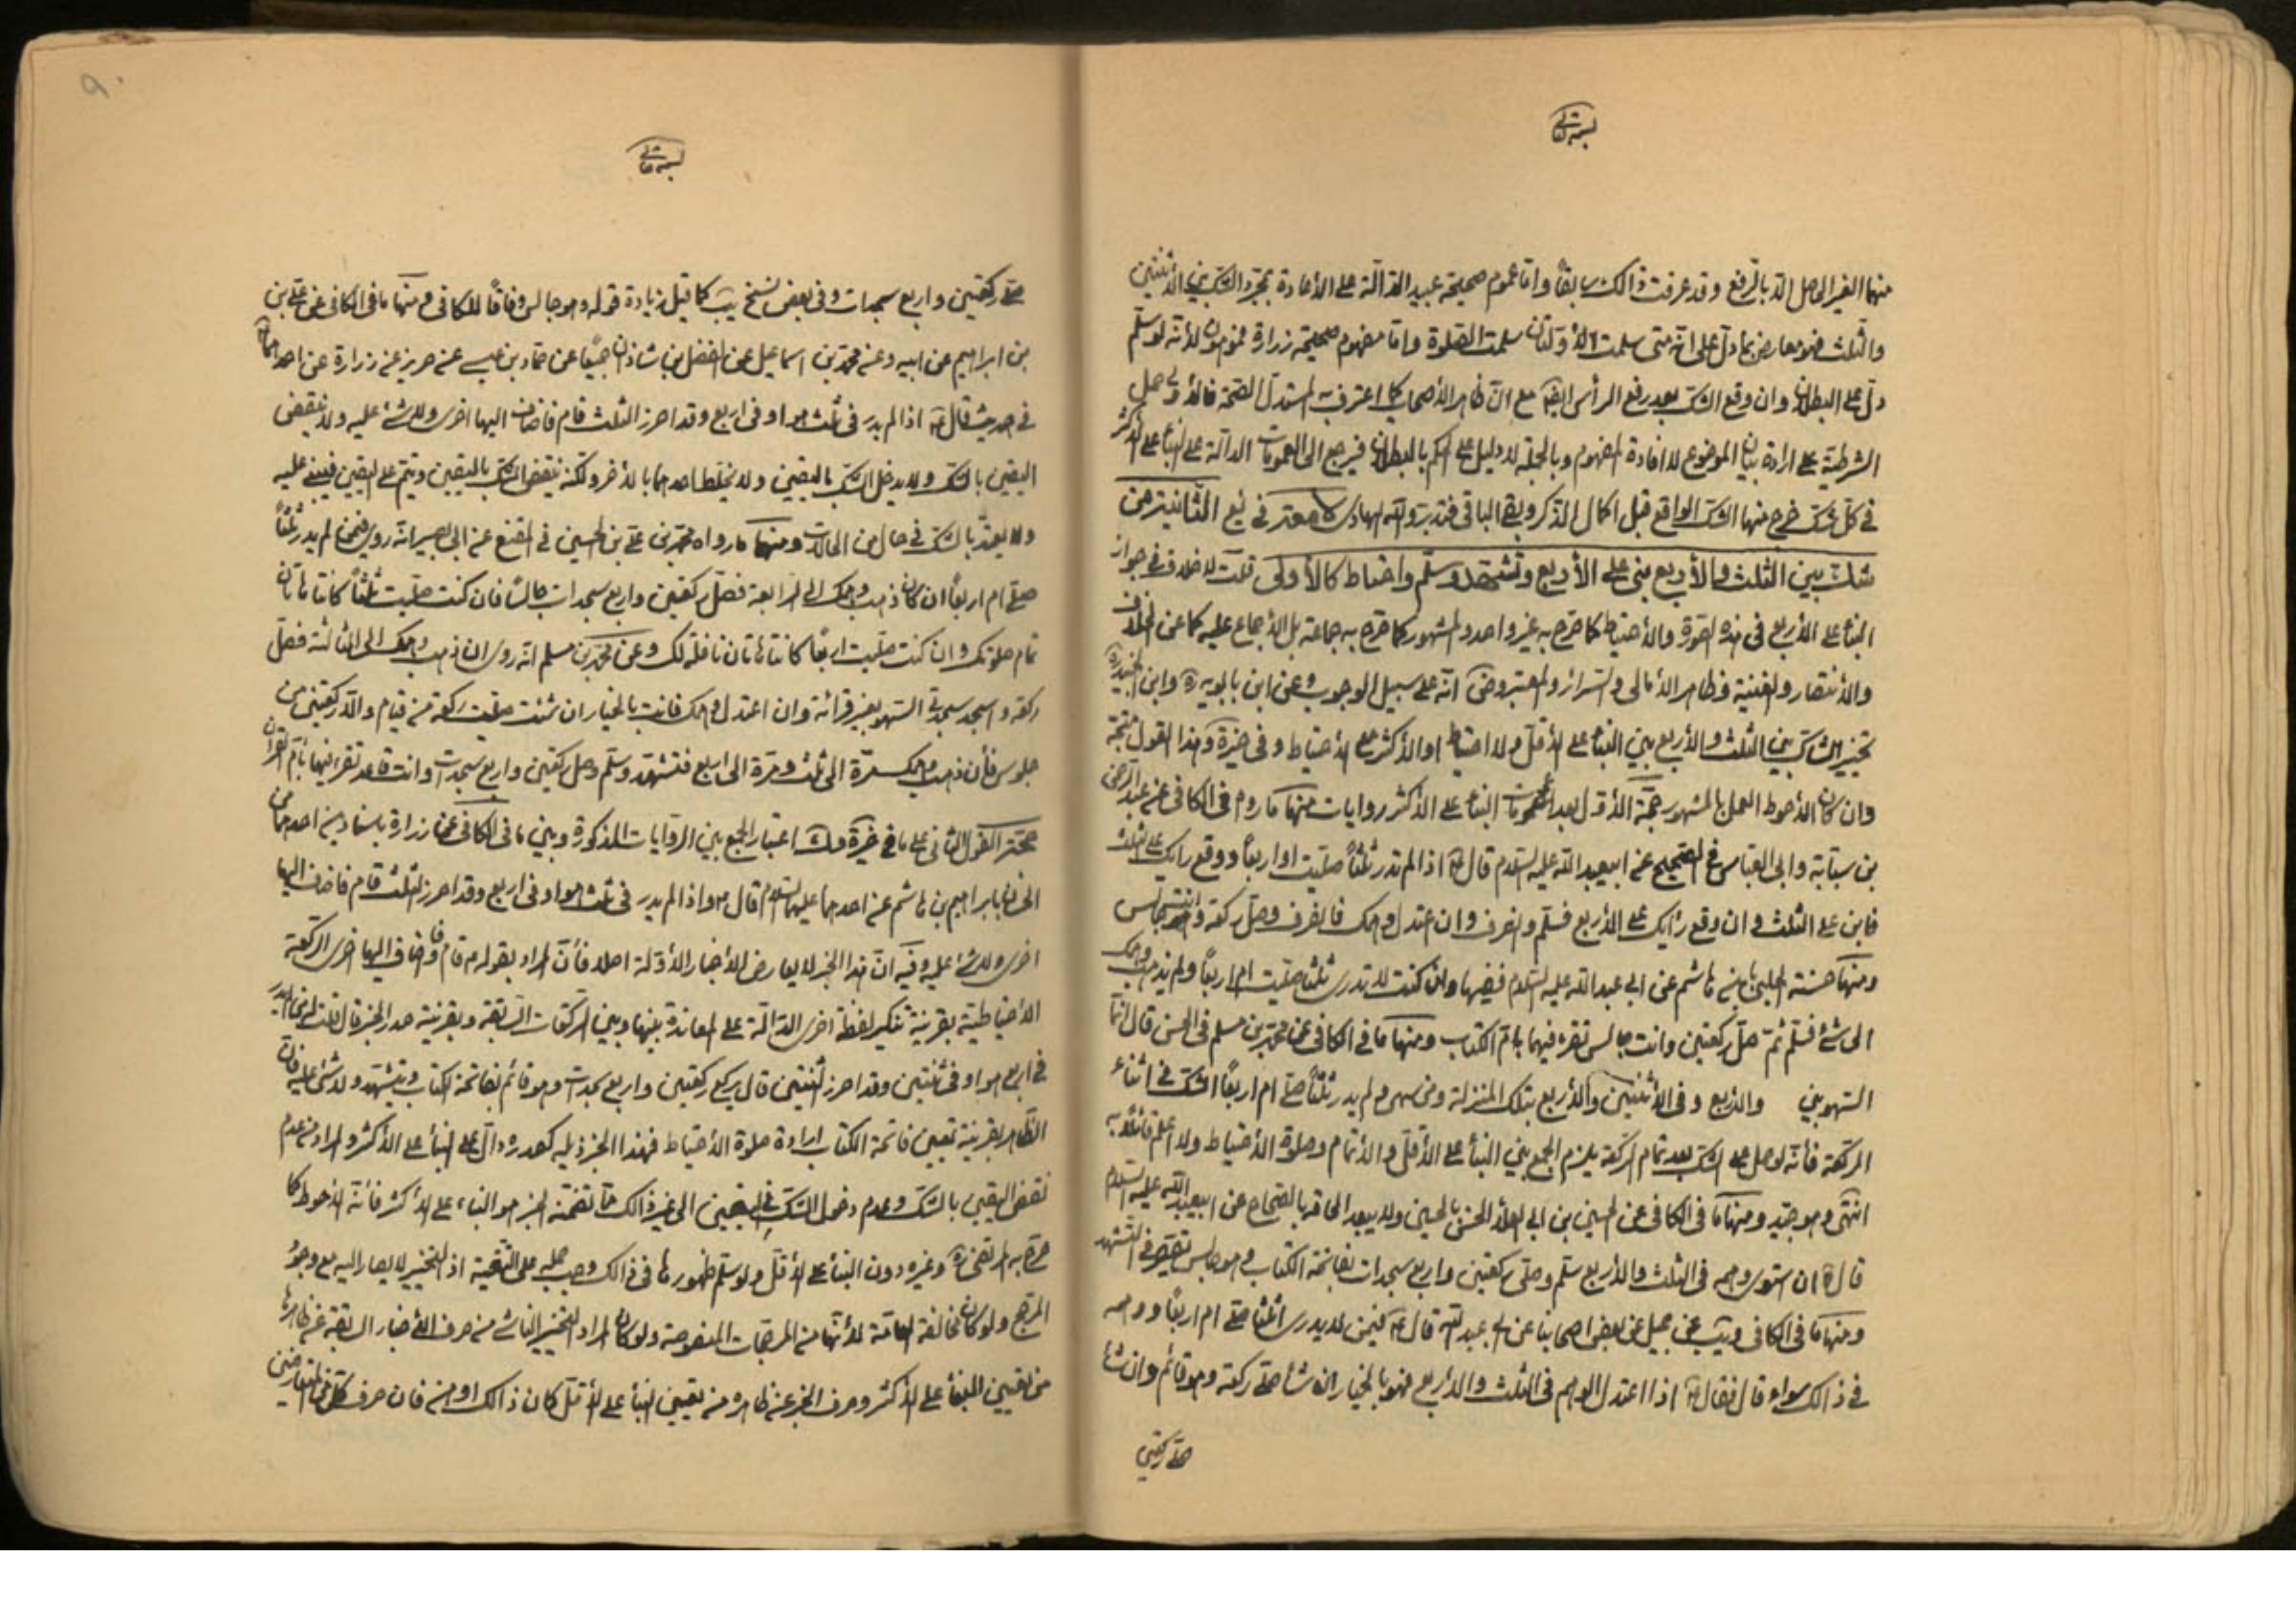 بسمه تعالی
منها الغير الحاصل الا بالرفع وقد عرفت ذالك سابقاً واما عموم صحيحة عبيد الدالة على الأعادة بمجرد الشك بين الأثنتين
والثلث فهو معارض بما دل على انه متى سلمت الأولتان سلمت الصلوة واما مفهوم صحيحة زرارة فموهون لأنه لو سلم
دل على البطلان وان وقع الشك بعد رفع الرأس ايضا مع ان ظاهر الأصحاب كما اعترف به المستدل الصحة فالأولى حمل
الشرطية على ارادة بيان الموضوع لا افادة المفهوم وبالجملة لا دليل على الحكم بالبطلان فيرجع الى العمومات الدالة على البناء على الأكثر
في كل شك خرج منها الشك الواقع قبل اكمال الذكر وبقى الباقى فتدبر والله الهادى الثانية من
شك بين الثلث والأربع بنى على الأربع وتشهد وسلم واحتاط كالأولى قلت لا خلاف في جواز
البناء على الأربع في هذه الصورة والأحتياط كما صرح به غير واحد والمشهور كما صرح به جماعة بل الأجماع عليه كما عن الخلاف
والأنتصار والغنية وظاهر الأمالى والسرائر والمعتبر وض انه على سبيل الوجوب وعن ابن بابويه ره وابن الجنيد ره
تخيير الشاك بين الثلث والأربع بين البناء على الأقل ولا احتياط او الأكثر مع الأحتياط وفى خيرة وهذا القول متجه
وان كان الأحوط العمل بالمشهور حجة الأول بعد عمومات البناء على الأكثر روايات منها ما روى في الكافى عن عبد الرحمن
بن سيابة وابى العباس في الصحيح عن ابيعبد الله عليه السلام قال اذا لم تدر ثلثاً صليت او اربعاً ووقع رايك على الثلث
فابن على الثلث وان وقع رأيك على الأربع فسلم وانصرف وان اعتدل وهمك فانصرف وصل ركعتين وانت جالس
ومنها حسنة الحلبى بابن هاشم عن ابى عبد الله عليه السلام ففيها وان كنت لا تدرى ثلثا صليت ام اربعاً ولم يذهب وهمك
الى شئ فسلم ثم صل ركعتين وانت جالس تقرء فيهما بام الكتاب ومنها ما في الكافى عن محمد بن مسلم في الحسن قال انما
السهو بين والأربع وفى الأثنتين والأربع بتلك المنزلة ومن سهى ولم يدر ثلثاً صلى ام اربعاً الشك في اثناء
الركعة فأنه لو حصل الشك بعد تمام الركعة يلزم الجمع بين البناء على الأقل والأتمام وصلوة الأحتياط ولا اعلم قائلا به
انتهى وهو جيد ومنها ما في الكافى عن الحسين بن ابى العلاء الحسن بالحسين ولا يبعد الحاقه بالصحاح عن ابيعبد الله عليه السلام
قال ان استوى وهمه في الثلث والأربع سلم وصلى ركعتين واربع سجدات بفاتحة الكتاب وهو جالس يقصر في التشهد
ومنها ما في الكافى ويب عن جميل عن بعض اصحابنا عن ابى عبد الله قال فيمن لا يدرى اثلثا صلى ام اربعا ووهمه
في ذالك سواء قال فقال اذا اعتدل الوهم في الثلث والأربع فهو بالخيار ان شاء صلى ركعة وهو قائم وان شاء
صلى ركعتين
بسمه تعالی
صلى ركعتين واربع سجدات وفى بعض نسخ يب كما قيل زيادة قوله وهو جالس وفاقاً للكافى ومنها ما في الكافى عن على بن
بن ابراهيم عن ابيه وعن محمد بن اسماعيل عن الفضل بن شاذان جميعًا عن حماد بن عيسى عن حريز عن زرارة عن احدهما
في حديث قال اذا لم يدر في ثلث هو او في اربع وقد احرز الثلث قام فاضاف اليها اخرى ولا شئ عليه ولا ينقض
اليقين بالشك ولا يدخل الشك باليقين ولا يخلط احدهما بالأخر ولكنه ينقض الشك باليقين ويتم على اليقين فيبنى عليه
ولا يعتد بالشك في حال من الحالات ومنها ما رواه محمد بن على بن الحسين في المقنع عن ابى بصير انه روى فيمن لم يدر ثلثاً
صلى ام اربعاً ان كان ذهب وهمك الى الرابعة فصل ركعتين واربع سجدات جالسًا فان كنت صليت ثلثاً كانتا هاتان
تمام صلوتك وان كنت صليت اربعًا كانتا هاتان نافلة لك وعن محمد بن مسلم انه روى ان ذهب وهمك الى الثالثة فصل
ركعة واسجد سجدتى السهو بغير قرائة وان اعتدل وهمك فانت بالخيار ان شئت صليت ركعة من قيام والا ركعتين من
جلوس فأن ذهب وهمك مرة الى ثلث ومرة الى اربع فتشهد وسلم وصل ركعتين واربع سجدات وانت قاعد تقرء فيهما بأم القرآن
حجة القول الثانى على ما في خيرة اعتبار الجمع بين الروايات المذكورة وبين ما في الكافى عن زرارة باسنادين احدهما
الحسن بابراهيم بن هاشم عن احدهما عليهما السلام قال واذا لم يدر في ثلث هو او في اربع وقد احرز الثلث قام فاضاف اليها
اخرى ولا شئ عليه وفيه ان هذا الخبر لا يعارض الأخبار الأولة اصلا فأن المراد بقوله قام واضاف اليها اخرى الركعة
الأحتياطية بقرينة تنكير لفظة اخرى الدالة على المعاندة بينها وبين الركعات السابقة وبقرينة صدر الخبر قال قلت له من لم يدر
في اربع هو او في ثنتين وقد احرز الثنتين قال يركع ركعتين واربع سجدات وهو قائم بفاتحة الكتاب ويتشهد ولا شئ عليه فان
الظاهر بقرينة تعيين فاتحة الكتاب ارادة صلوة الأحتياط فهذا الخبر ذيله كصدره دال على البناء على الأكثر والمراد من عدم
نقض اليقين بالشك وعدم دخول الشك في اليقين الى غير ذالك مما تضمنه الخبر هو البناء على الأكثر فأنه الأحوط كما
صرح به المرتضى ره وغيره دون البناء على الأقل ولو سلم ظهورها في ذالك وجب حمله على التقية اذ التخيير لا يصار اليه مع وجود
المرجح ولو كان مخالفة العامة لأنها من المرجحات المنصوصة ولو كان المراد التخيير الناشى من صرف الأخبار السابقة عن ظاهرها
من تعيين البناء على الأكثر وصرف الخبر عن ظاهره من تعيين البناء على الأقل كان ذالك اوهن فان صرف كل من المتعارضين